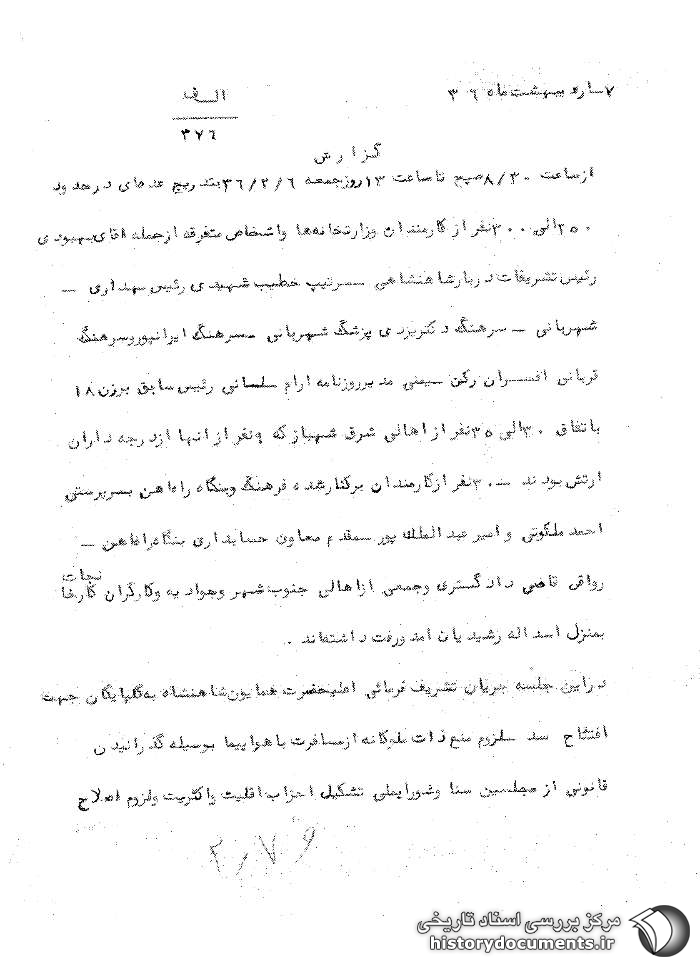 ۷ ارد یبهشت ماه ۳۶
الـــف
۳۷۶
گزارش
از ساعت ۸/۳۰ صبح تا ساعت ۱۳ روز جمعه ۳۶/۲/۶ بتدریج عده‌ای در حدود
۲۵۰ الی ۳۰۰ نفر از کارمندان وزارتخانه‌ها و اشخاص متفرقه از جمله آقای بهبودی
رئیس تشریفات دربار شاهنشاهی – سرتیپ خطیب شهیدی رئیس بهداری –
شهربانی – سرهنگ دکتر یزدی پزشگ شهربانی – سرهنگ ایرانپور و سرهنگ
قربانی افسران رکن – یمنی مدیر روزنامه ارام – سلسانی رئیس سابق برزن ۱۸
باتفاق ۳۰ الی ۳۵ نفر از اهالی شرق شهباز که ۹ نفر از انها از درجه داران
ارتش بودند – ۳۰ نفر از کارمندان برکنار شده فرهنگ و بنگاه راه‌اهن بسرپرستی
احمد ملکوتی و امیر عبدالملک پور – مقدم معاون حسابداری بنگاه راه‌اهن –
رواقی قاضی دادگستری و جمعی از اهالی جنوب شهر و جوادیه و کارگران کارخا
نجات
بمنزل اسداله رشیدیان امد و رفت داشته‌اند .
در این جلسه جریان تشریف فرمائی اعلیحضرت همایون شاهنشاه به گلپایگان جهت
افتتاح سد – لزوم منع ذات ملوکانه از مسافرت با هواپیما بوسیله گذرانیدن
قانونی از مجلسین سنا و شورایملی تشکیل احزاب اقلیت و اکثریت و لزوم اصلاح
مرکز بررسی اسناد تاریخی
historydocuments.ir